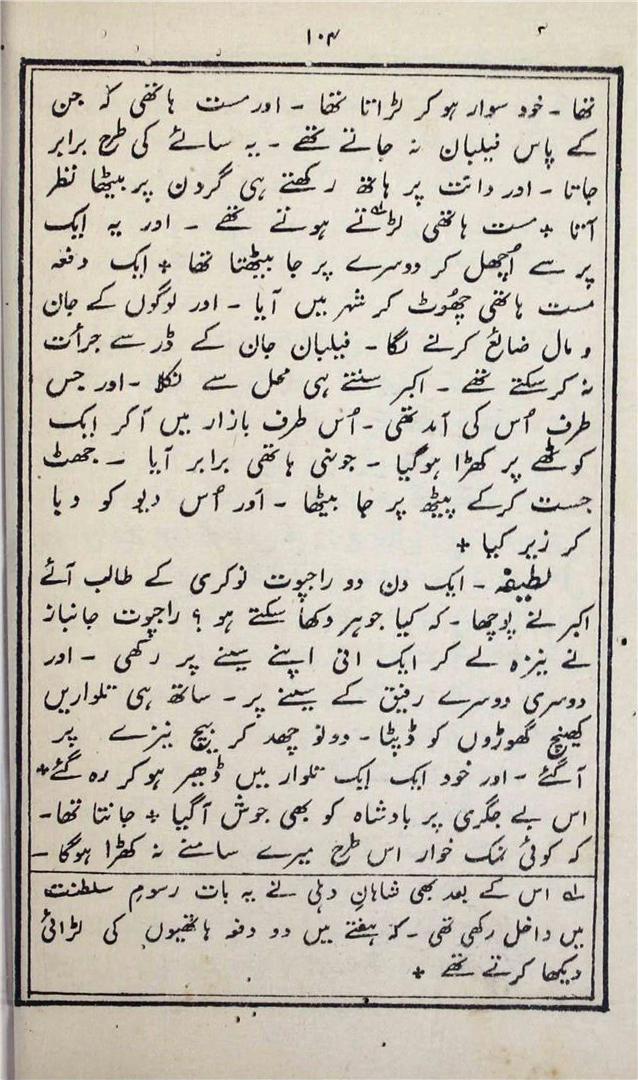 ۱۰۴
تھا - خود سوار ہو کر لڑاتا تھا - اور مست ہاتھی کہ جن
کے پاس فیلبان نہ جاتے تھے - یہ سائے کی طرح برابر
جاتا - اور دانت پر ہاتھ رکھتے ہی گردن پر بیٹھا نظر
آتا + مست ہاتھی لڑتے ہوتے تھے - اور یہ ایک
پر سے اُچھل کر دوسرے پر جا بیٹھتا تھا + ایک دفعہ
مست ہاتھی چھُوٹ کر شہر میں آیا - اور لوگوں کے جان
و مال ضائع کرنے لگا - فیلبان جان کے ڈر سے جرأت
نہ کر سکتے تھے - اکبر سنتے ہی محل سے نکلا - اور جس
طرف اُس کی آمد تھی - اُس طرف بازار میں آ کر ایک
کوٹھے پر کھڑا ہو گیا - جونہی ہاتھی برابر آیا - جھٹ
جست کر کے پیٹھ پر جا بیٹھا - اور اُس دیو کو دبا
کر زیر کیا +
لطیفہ - ایک دن دو راجپوت نوکری کے طالب آئے
اکبر نے پوچھا - کہ کیا جوہر دکھا سکتے ہو ؟ راجپوت جانباز
نے نیزہ لے کر ایک انی اپنے سینے پر رکھی - اور
دوسری دوسرے رفیق کے سینے پر - ساتھ ہی تلواریں
کھینچ گھوڑوں کو ڈپٹا - دونو چھد کر بیچ نیزے پر
آ گئے - اور خود ایک ایک تلوار میں ڈھیر ہو کر رہ گئے +
اس بے جگری پر بادشاہ کو بھی جوش آگیا + جانتا تھا -
کہ کوئی نمک خوار اس طرح میرے سامنے نہ کھڑا ہوگا -
لہ اس کے بعد بھی شاہانِ دہلی نے یہ بات رسومِ سلطنت
میں داخل رکھی تھی - کہ ہفتے میں دو دفعہ ہاتھیوں کی لڑائی
دیکھا کرتے تھے +